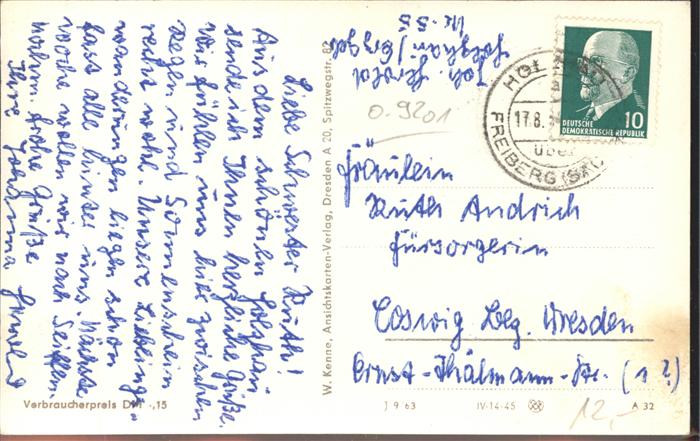 Liebe Schwester Ruth!
Aus dem schönen Holzhau
sende ich Ihnen herzliche Grüße.
Wir fühlen uns hier zwischen
Regen und Sonnenschein
recht wohl. Unsere Lieblings-
wanderungen liegen schon
fast alle hinter uns. Nächste
Woche wollen wir nach Seiffen.
Frohe Grüße
Ihre Johanna
Verbraucherpreis DM -,15
W. Kenne, Ansichtskarten-Verlag, Dresden A 20, Spitzwegstr. 82
Joh.
Holzhau/Erzgeb.
Nr. 55
0.9201
HOL
17.8.
über
FREIBERG (SACHS
DEUTSCHE
DEMOKRATISCHE REPUBLIK
10
Fräulein
Ruth Andrich
Fürsorgerin
Coswig Bez. Dresden
Ernst-Thälmann-Str. (1?)
J 9 63
IV-14-45
A 32
12,-